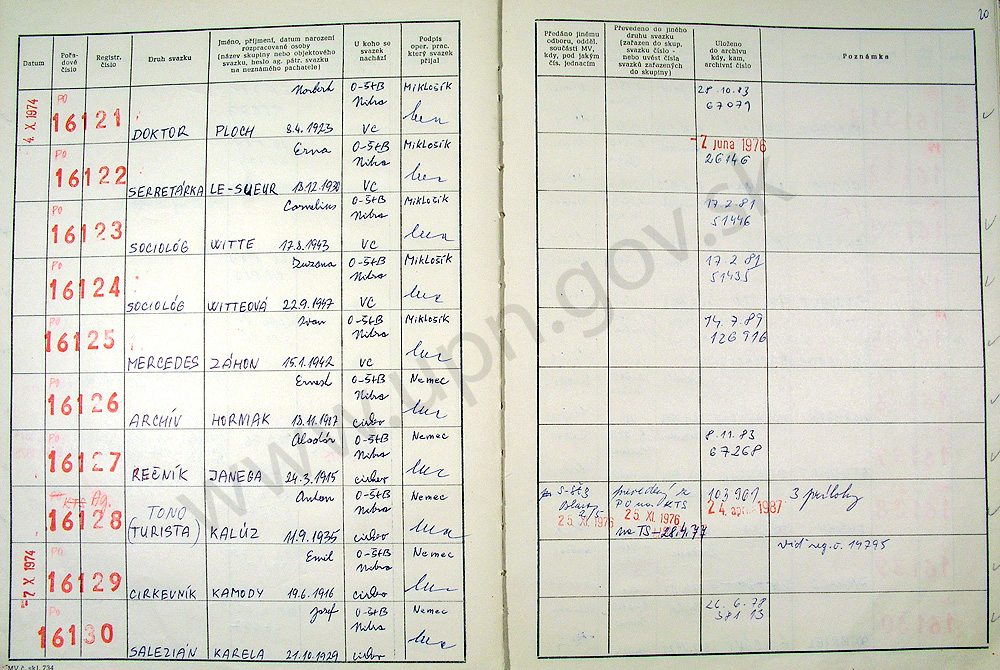 20
Datum
Pořa-
dové
číslo
Registr.
číslo
Druh svazku
Jméno, příjmení, datum narození
rozpracované osoby
(název skupiny nebo objektového
svazku, heslo ag. pátr. svazku
na neznámého pachatele)
U koho se
svazek
nachází
Podpis
oper. prac.
který svazek
přijal
Předáno jinému
odboru, odděl.
součásti MV,
kdy, pod jakým
čís. jednacím
Převedeno do jiného
druhu svazku
(zařazen do skup.
svazku číslo -
nebo uvést čísla
svazků zařazených
do skupiny)
Uloženo
do archivu
kdy, kam,
archivní číslo
Poznámka
4. X 1974
PO
16121
DOKTOR
Norbert
PLOCH 8.4.1923
O-ŠtB
Nitra
VC
Miklošík
28.10.83
67079
PO
16122
SEKRETÁRKA
Erna
LE-SUEUR 13.12.1930
O-ŠtB
Nitra
VC
Miklošík
-7 júna 1976
26146
PO
16123
SOCIOLÓG
Cornelius
WITTE 17.8.1943
O-ŠtB
Nitra
VC
Miklošík
17.2.81
51446
PO
16124
SOCIOLÓG
Zuzana
WITTEOVÁ 22.9.1947
O-ŠtB
Nitra
VC
Miklošík
17.2.81
51435
PO
16125
MERCEDES
Ivan
ZÁMON 15.1.1942
O-ŠtB
Nitra
VC
Miklošík
14.7.89
126916
PO
16126
ARCHÍV
Ernest
HORNIAK
O-ŠtB
Nitra
cirkev
Nemec
PO
16127
REČNÍK
JANEGA 24.3.1915
O-ŠtB
Nitra
cirkev
Nemec
8.11.83
67268
PO KTS Ag.
16128
TONO
(TURISTA)
Anton
KALÚZ 11.9.1935
O-ŠtB
Nitra
cirkev
Nemec
S-ŠtB
25. XI. 1976
prevedený z
PO na KTS
25. XI. 1976
na TS - 28.4.77
103961
24. apr. 1987
3 prílohy
-7 X 1974
PO
16129
CIRKEVNÍK
Emil
KAMODY 19.6.1916
O-ŠtB
Nitra
cirkev
Nemec
viď reg. č. 14795
PO
16130
SALEZIÁN
Jozef
KARELA 21.10.1929
O-ŠtB
Nitra
cirkev
Nemec
26.6.78
38113
MV č. skl. 734
www.upn.gov.sk